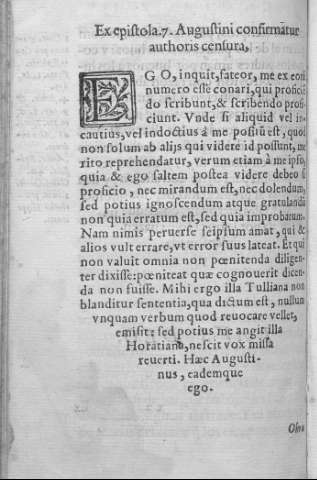 Ex epistola.7. Augustini confirmãtur
authoris censura,
EGO, inquit, fateor, me ex eorũ
numero esse conari, qui proficiē
do scribunt, & scribendo profi-
ciunt. Vnde si aliquid vel in-
cautius, vel indoctius á me positũ est, quod
non solum ab alijs qui videre id possunt, me
rito reprehendatur, verum etiam à me ipso,
quia & ego saltem postea videre debeo si
proficio, nec mirandum est, nec dolendum,
sed potius ignoscendum atque gratulandũ
non quia erratum est, sed quia improbatum.
Nam nimis peruerse seipsum amat, qui &
alios vult errare, vt error suus lateat. Et qui
non valuit omnia non pœnitenda diligen-
ter dixisse: pœniteat quæ cognouerit dicen-
da non fuisse. Mihi ergo illa Tulliana non
blanditur sententia, qua dictum est, nullum
vnquam verbum quod reuocare vellet,
emisit: sed potius me angit illa
Horatiana, nescit vox missa
reuerti. Hæc Augusti-
nus, eademque
ego.